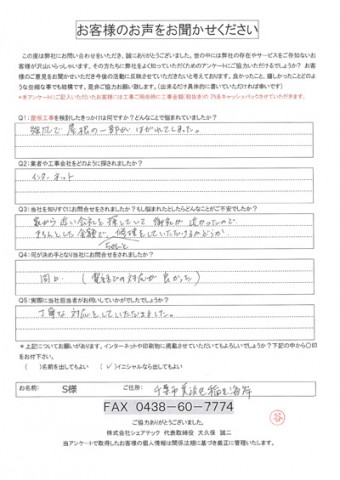 お客様のお声をお聞かせください
この度は弊社にお問い合わせをいただき、誠にありがとうございました。世の中には弊社の存在やサービスをご存知ないお
客様が沢山いらっしゃいます。その方たちに弊社をよく知っていただくためのアンケートにご協力いただけるでしょうか？お客
様のご意見をお聞かせいただき今後の活動に反映させていただきたいと考えております。良かったこと、嬉しかったことどのよ
うな些細な事でも結構です。是非ご協力お願い致します。（出来るだけ具体的に書いていただければ幸いです）
＊本アンケートにご記入いただいたお客様には工事ご契約時に工事金額（税抜き）の2%をキャッシュバックさせていただきます。
Q1：屋根工事を検討したきっかけは何ですか？どんなことで悩まれていましたか？
強風で屋根の一部がはがれてしまった。
Q2：業者や工事会社をどのように探されましたか？
インターネット
Q3：当社を知りすぐにお問合せをされましたか？もし悩まれたとしたらどんなことがご不安でしたか？
家から近い会社を探していて御社が近かったので
きちんとした金額で、修理をしていただけるかどうか
ちゃんと
Q4：何が決め手となり当社にお問合せをされましたか？
同上（電話での対応が良かった）
Q5：実際に当社担当者がお伺いしていかがでしたでしょうか？
丁寧な対応をしていただきました。
＊上記についてお願いがあります。インターネットや印刷物に掲載させていただいてもよろしいでしょうか？下記の中から〇印
をお付下さい。
（　）名前を出してもよい　（✓）イニシャルなら出してもよい
お名前：　S様　ご住所：　千葉市美浜区稲毛海岸
FAX 0438-60-7774
ご協力ありがとうございました。
株式会社シェアテック　代表取締役　大久保　誠二
当アンケートで取得したお客様の個人情報は関係法規に基づき厳正に管理いたします。